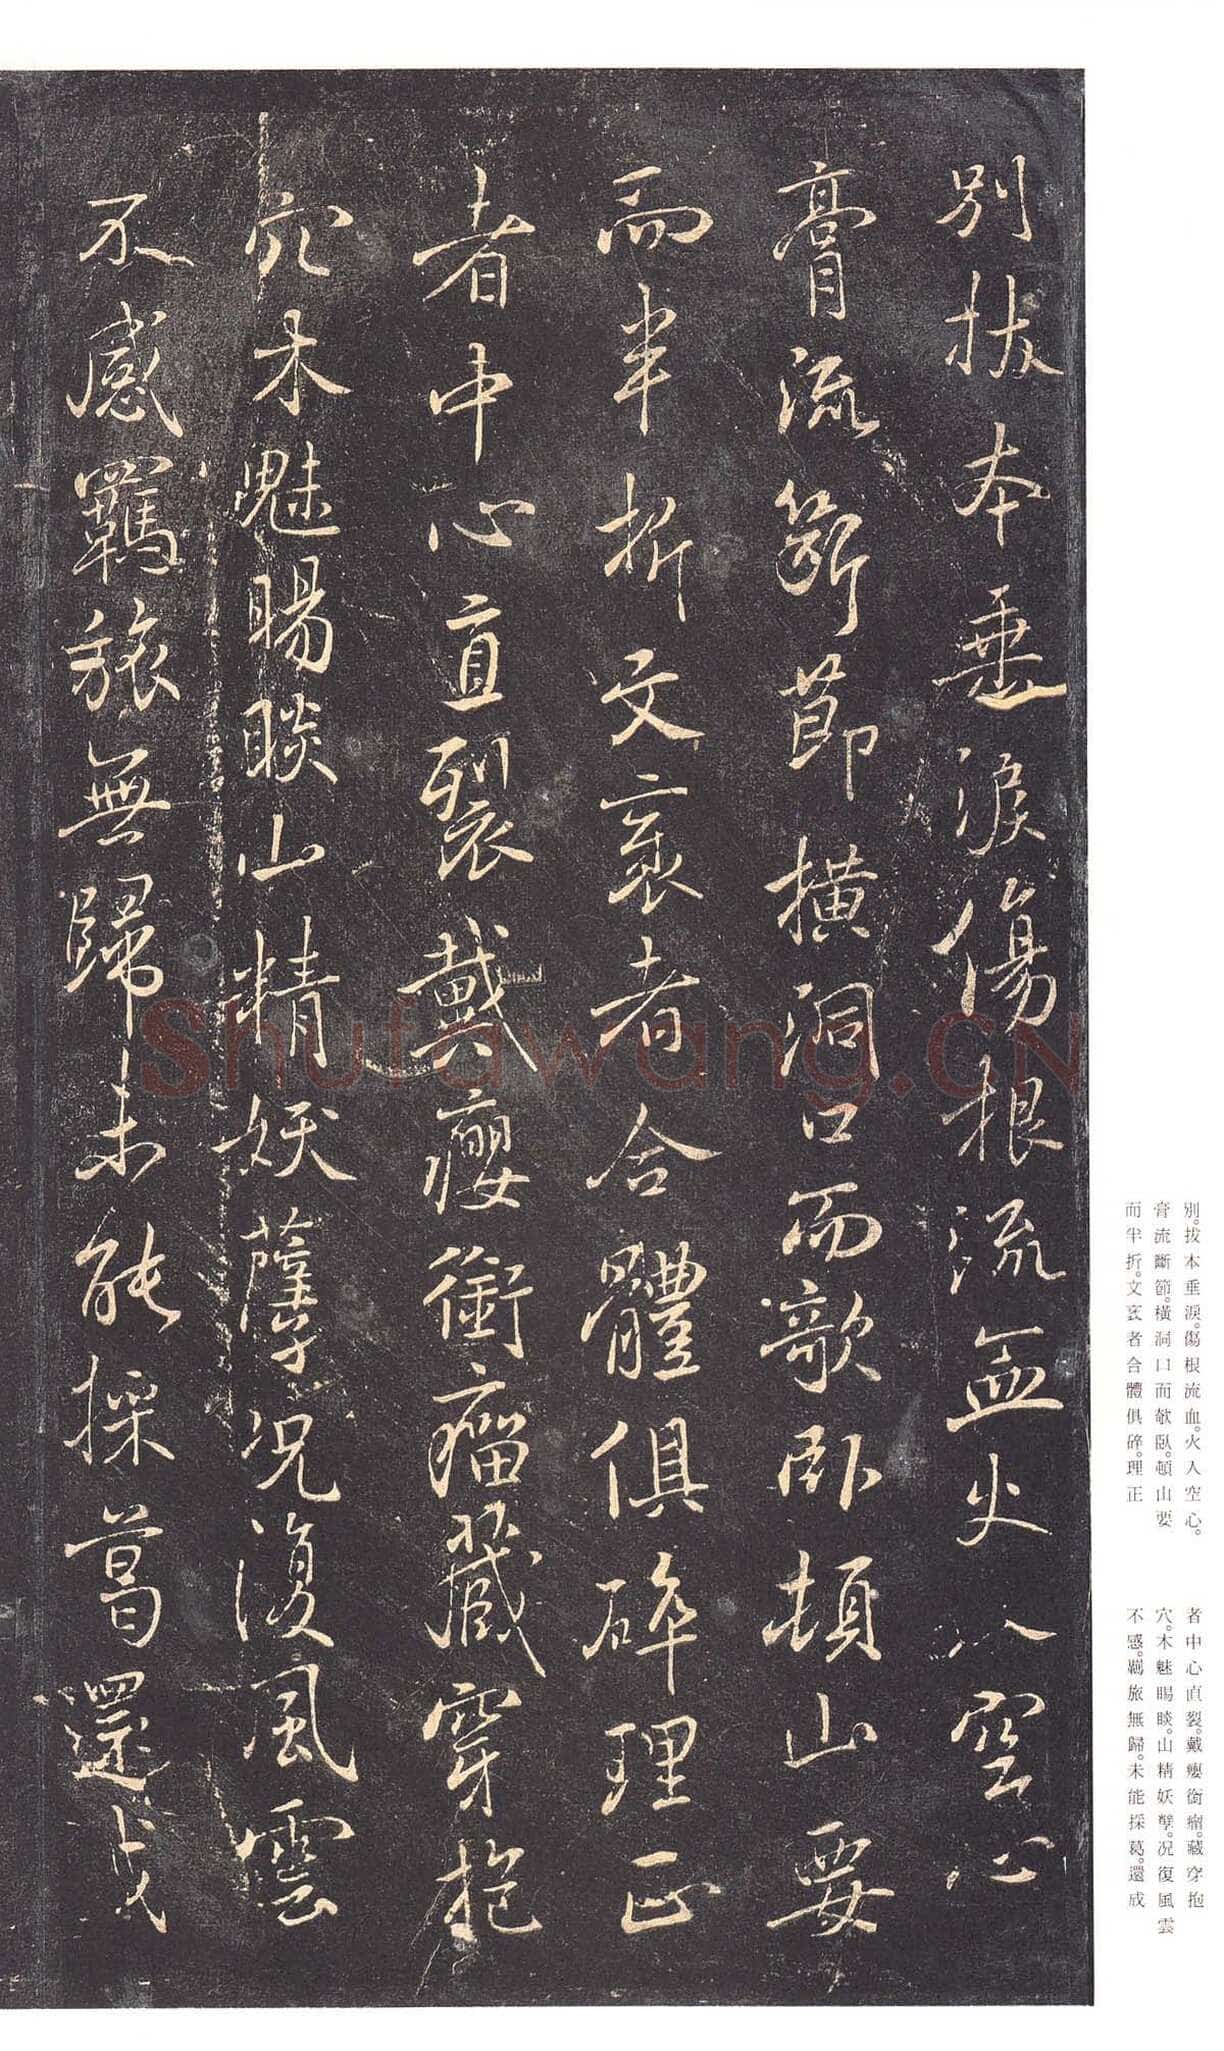 別拔本垂淚傷根流血火入空心
膏流斷節橫洞口而敧臥頓山要
而半折文衺者合體俱碎理正
者中心直裂戴癭銜瘤藏穿抱
穴木魅睗睒山精妖孽況復風雲
不感羈旅無歸未能採葛還成
別。拔本垂淚。傷根流血。火人空心。
膏流斷節。橫洞口而欹臥。頓山要
而半折。文衺者合體俱碎。理正
者中心直裂。戴癭銜瘤。藏穿抱
穴。木魅睗睒。山精妖孽。況復風雲
不感。羈旅無歸。未能採葛。還成
Shufawang.CN